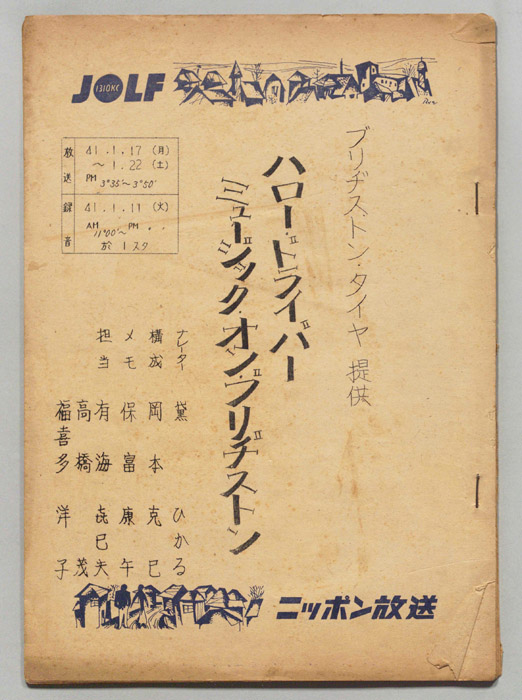 JOLF
1310KC
ブリヂストン・タイヤ 提供
ハロー・ドライバー
ミュージック・オン・ブリヂストン
放送 41.1.17 (月)
～1.22 (土)
PM 3°35'～3°50'
録音 41.1.11 (火)
AM 11°00'～ PM . .
於 1スタ
ナレーター 黛 ひかる
構成 岡本 克巳
メモ 保富 康午
担当 有海 㐂巳夫
高橋 茂
福喜多 洋子
ニッポン放送